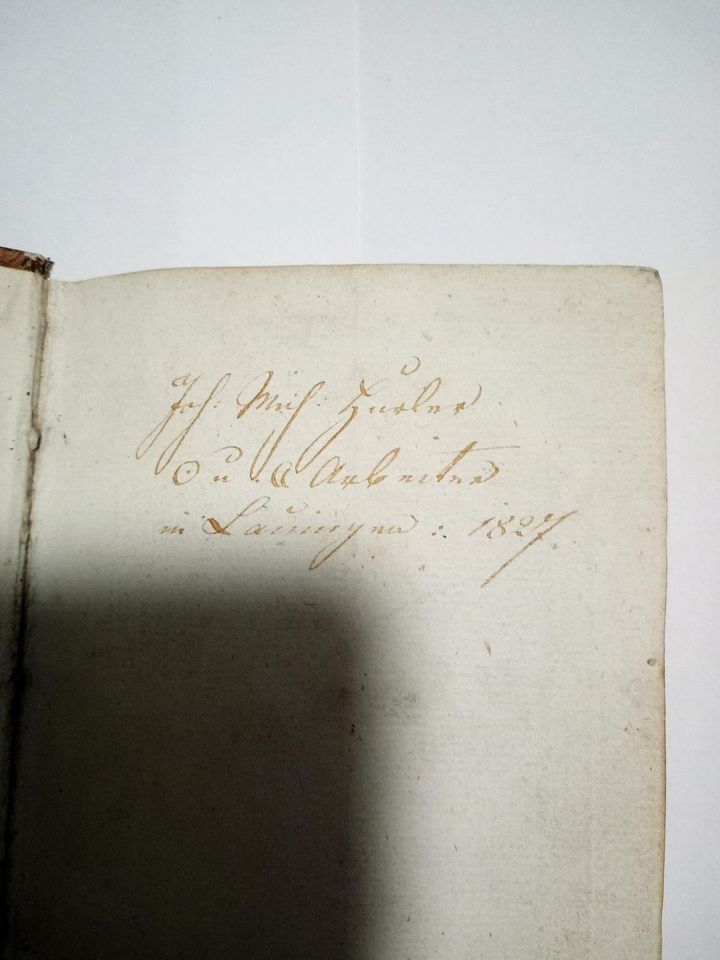 Joh: Mich: Hurler
☉ u. ☾ Arbeiter
in Lauingen : 1827.